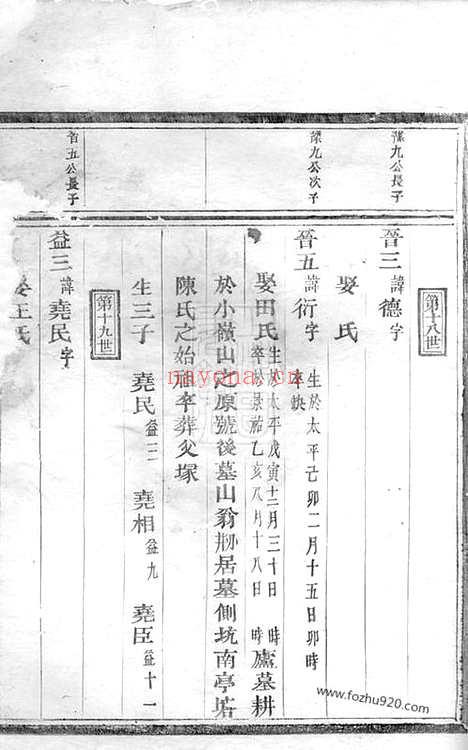 第十八世
濮九公長子
晉三諱德字
娶氏
濮九公次子
晉五諱衍字生於太平己卯二月十五日卯時
卒缺
娶田氏生於太平戊寅十二月三十日 時
卒於景祐乙亥八月十八日 時
廬墓耕
於小嶺山之原號後墓山翁剙居墓側坑南亭塔
陳氏之始祖卒葬父塚
生三子 堯民益三 堯相益九 堯臣益十一
第十九世
晉五公長子
益三諱堯民字
娶王氏
nayona.cn
www.fozhu920.com